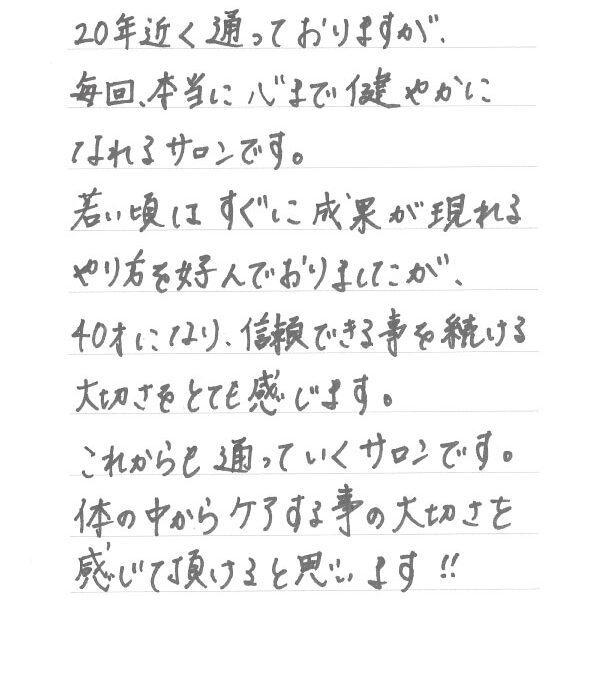 20年近く通っておりますが、
毎回、本当に心まで健やかに
なれるサロンです。
若い頃はすぐに成果が現れる
やり方を好んでおりましたが、
40才になり、信頼できる事を続ける
大切さをとても感じます。
これからも通っていくサロンです。
体の中からケアする事の大切さを
感じて頂けると思います!!